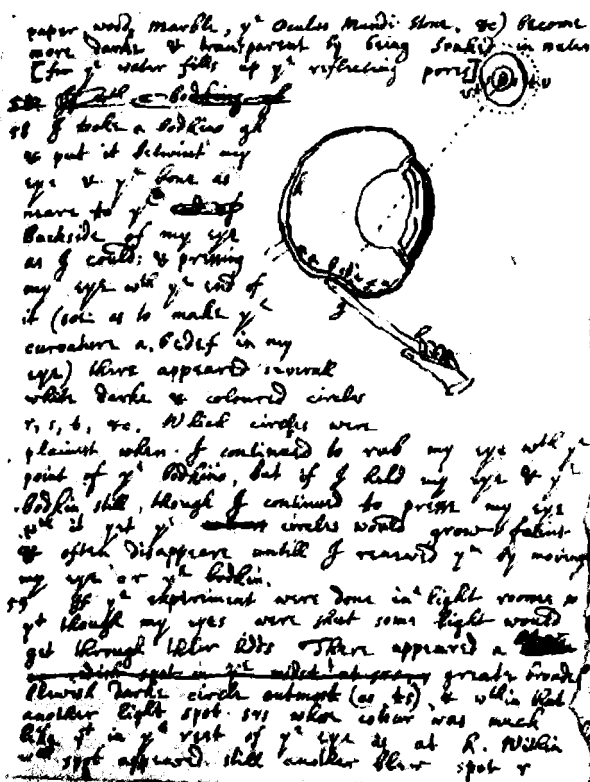 paper wood, marble, yᵉ Oculus Mundi Stone, &c) become
more darke & transparent by being soaked in water
[for yᵉ water fills up yᵉ reflecting pores]
58 I tooke a bodkine gh
& put it betwixt my
eye & yᵉ bone as
neare to yᵉ
backside of my eye
as I could: & pressing
my eye wᵗʰ yᵉ end of
it (soe as to make yᵉ
curvature a, bcdef in my
eye) there appeared severall
white darke & coloured circles
r, s, t, &c. Which circles were
plainest when I continued to rub my eye wᵗʰ yᵉ
point of yᵉ bodkine, but if I held my eye & yᵉ
bodkin still, though I continued to presse my eye
wᵗʰ it yet yᵉ circles would grow faint
& often disappeare untill I renewed yᵐ by moving
my eye or yᵉ bodkin.
59 If yᵉ experiment were done in a light roome so
yᵗ though my eyes were shut some light would
get through their lidds There appeared a
greate broade
blewish darke circle outmost (as ts), & wᵗʰin that
another light spot srs whose colour was much
like yᵗ in yᵉ rest of yᵉ eye as at k. Within
wᶜʰ spot appeared still another blew spot r